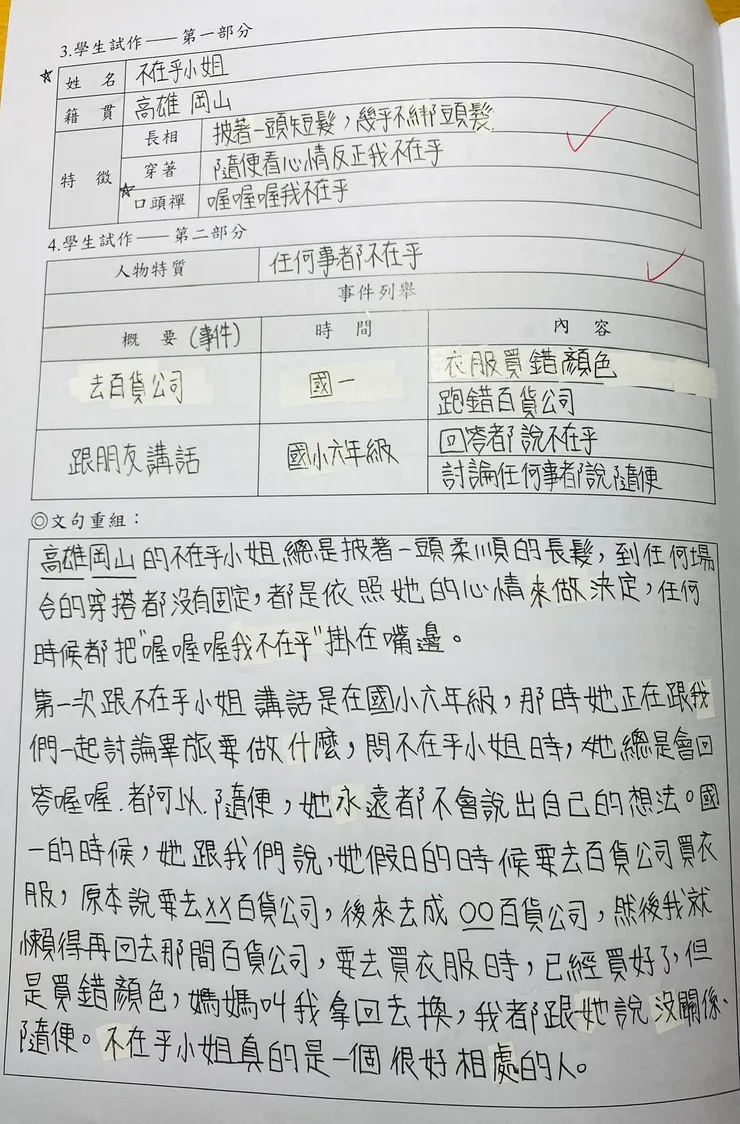 3.學生試作——第一部分
☆ 姓名 不在乎小姐
籍貫 高雄 岡山
特徵 長相 披著一頭短髮，幾乎不綁頭髮.
穿著 隨便看心情反正我不在乎
☆ 口頭禪 喔喔喔我不在乎
4.學生試作——第二部分
人物特質 任何事都不在乎
事件列舉
概要(事件) 時間 內容
去百貨公司 國一 衣服買錯顏色
跑錯百貨公司
跟朋友講話 國小六年級 回答都說不在乎
討論任何事都說隨便
◎文句重組：
高雄岡山的不在乎小姐總是披著一頭柔順的長髮，到任何場
合的穿搭都沒有固定，都是依照她的心情來做決定，任何
時候都把"喔喔喔我不在乎"掛在嘴邊。
第一次跟不在乎小姐講話是在國小六年級，那時她正在跟我
們一起討論畢旅要做什麼，問不在乎小姐時，她總是會回
答喔喔.都可以.隨便，她永遠都不會說出自己的想法。國
一的時候，她跟我們說，她假日的時候要去百貨公司買衣
服，原本說要去XX百貨公司，後來去成OO百貨公司，然後我就
懶得再回去那間百貨公司，要去買衣服時，已經買好了，但
是買錯顏色，媽媽叫我拿回去換，我都跟她說沒關係、
隨便。不在乎小姐真的是一個很好相處的人。